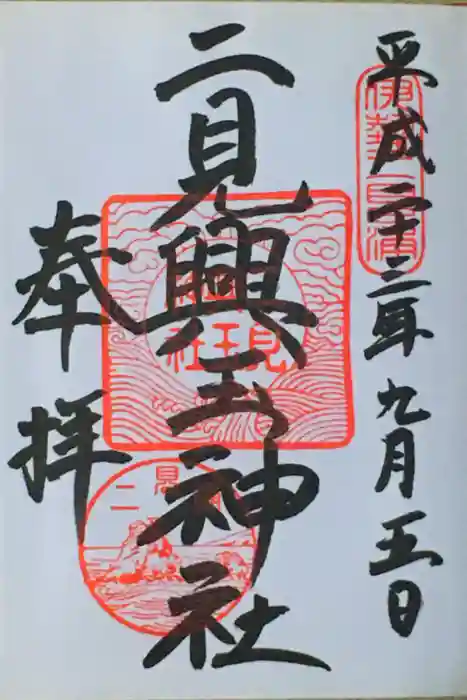 平成二十三年九月五日
二見興玉神社
奉拝